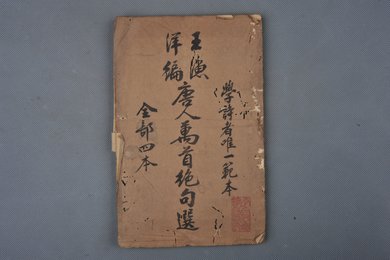 學詩者唯一範本
王漁洋編
唐人萬首絕句選
全部四本